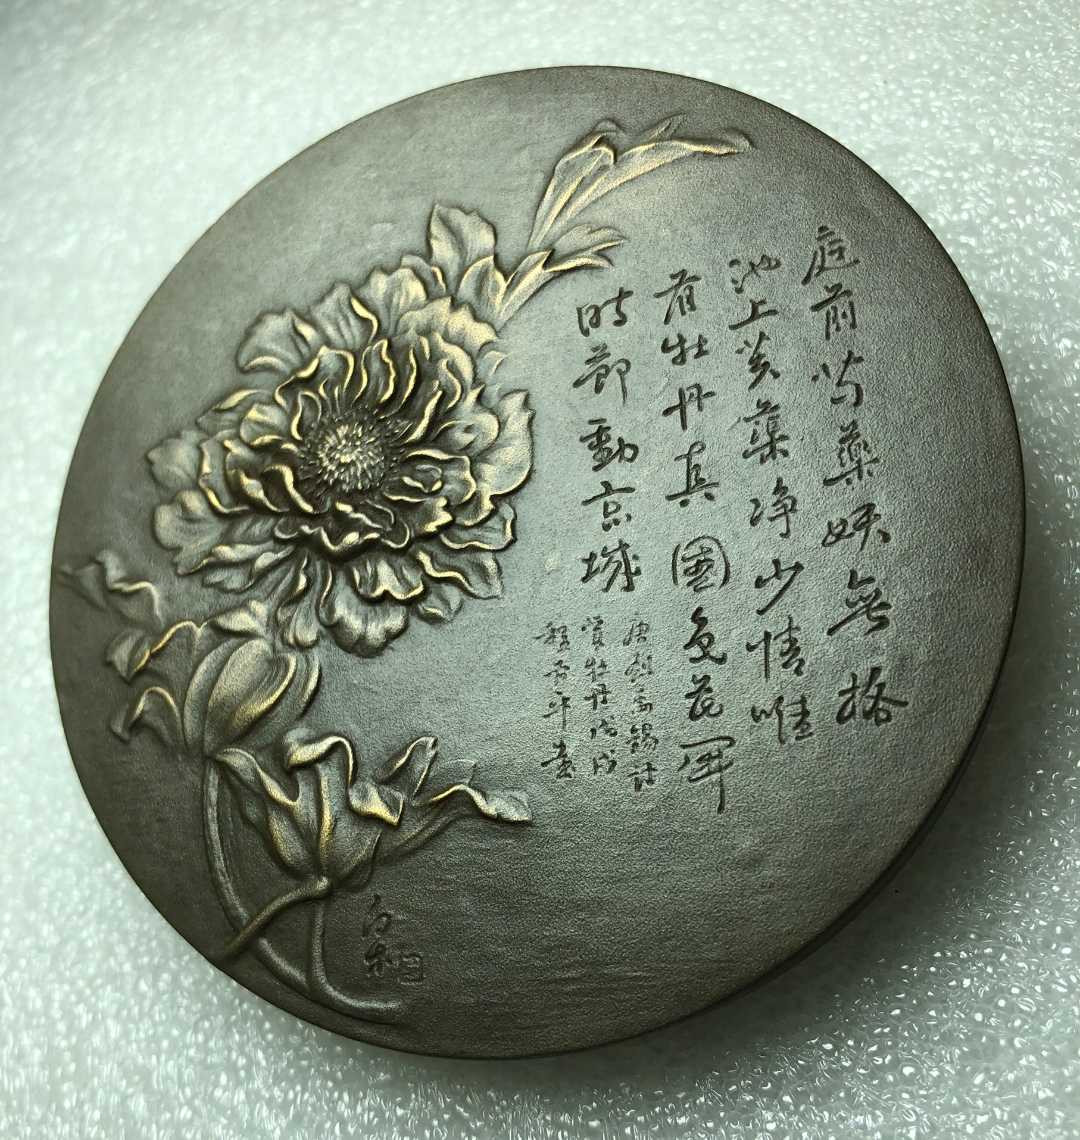 庭前芍藥妖無格
池上芙蕖净少情唯
有牡丹真國色花開
時節動京城
唐劉禹錫詩
賞牡丹戊戌